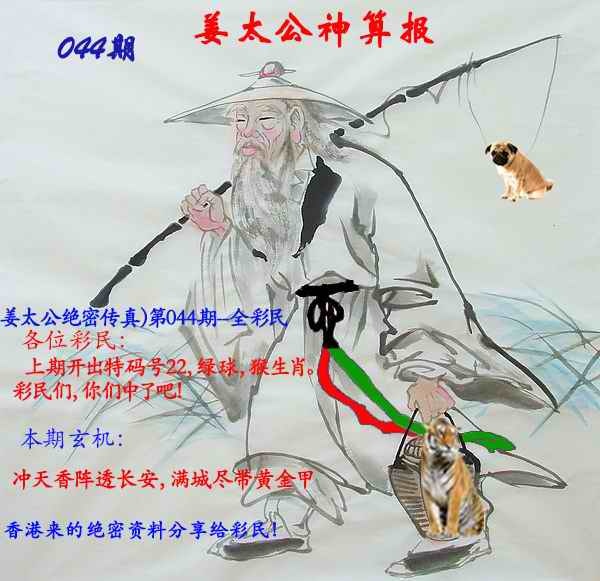 姜太公神算报
044期
姜太公绝密传真)第044期-全彩民
各位彩民:
上期开出特码号22,绿球,猴生肖。
彩民们,你们中了吧!
本期玄机:
冲天香阵透长安,满城尽带黄金甲
香港来的绝密资料分享给彩民!